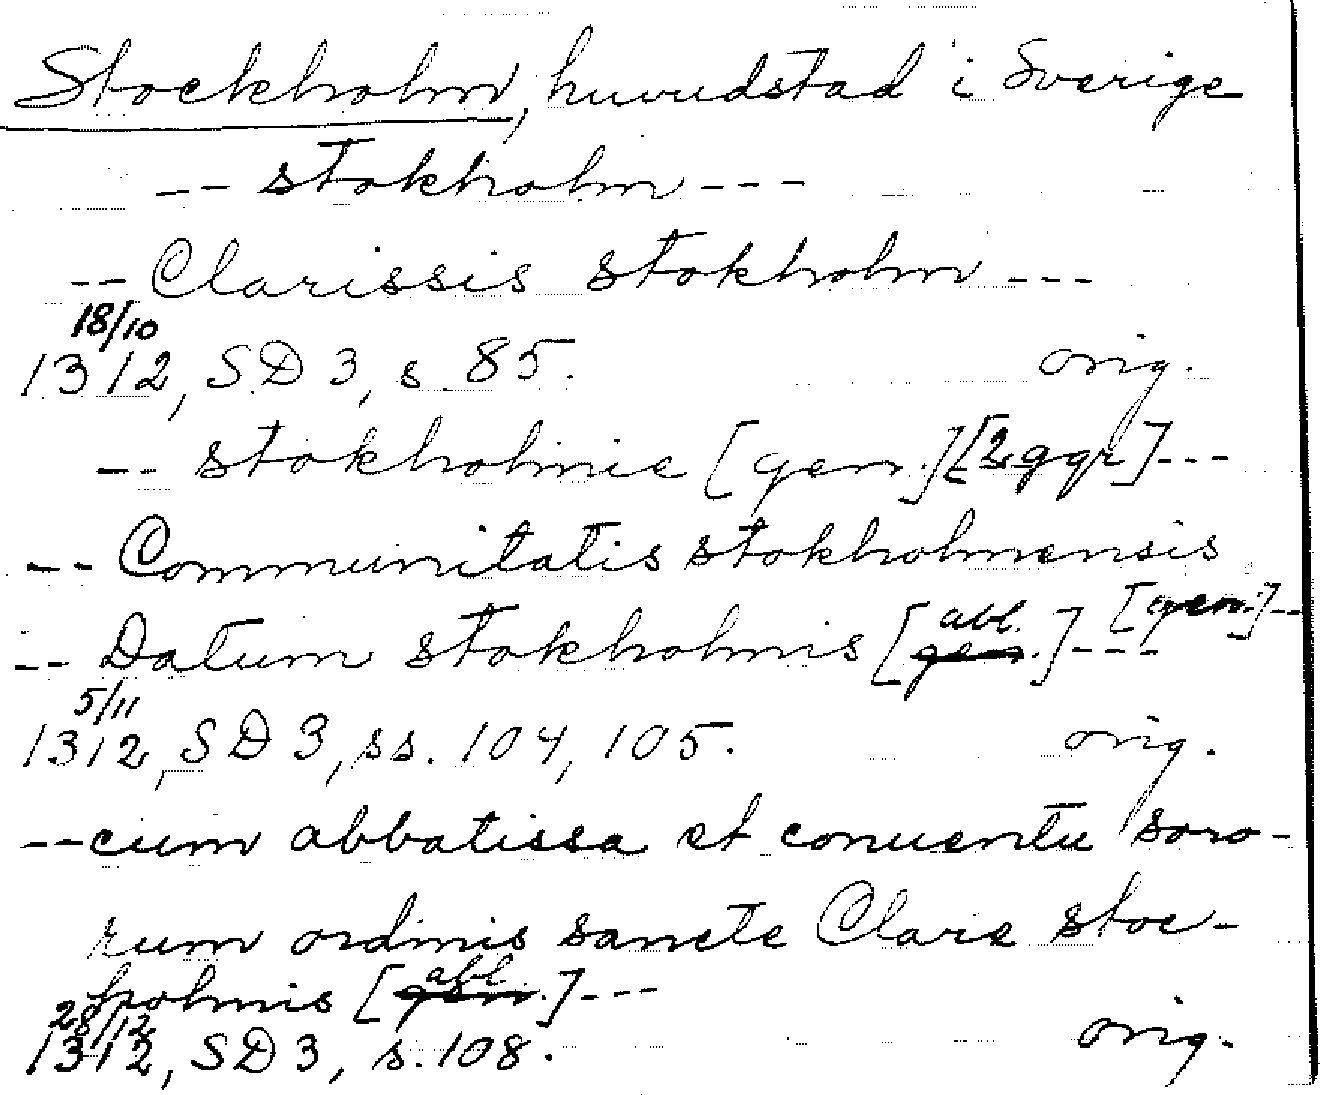 Stockholm, huvudstad i Sverige
-- stokholm ---
-- Clarissis stokholm ---
18/10
1312, SD 3, s. 85. orig.
-- stokholmie [gen.] [2 ggr] ---
-- Communitatis stokholmensis
[gen.] --
-- Datum stokholmis [abl.] ---
5/11
1312, SD 3, ss. 104, 105. orig.
-- cum abbatissa et conuentu soro-
rum ordinis sancte Clare stoc-
holmis [abl.] ---
28/12
1312, SD 3, s. 108. orig.